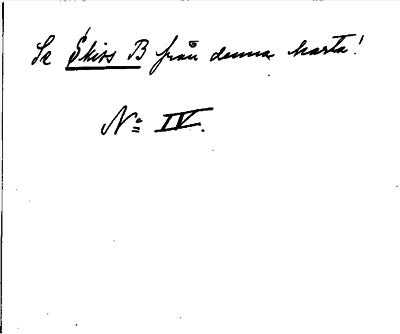 Se Skiss B från denna karta!
No IV.